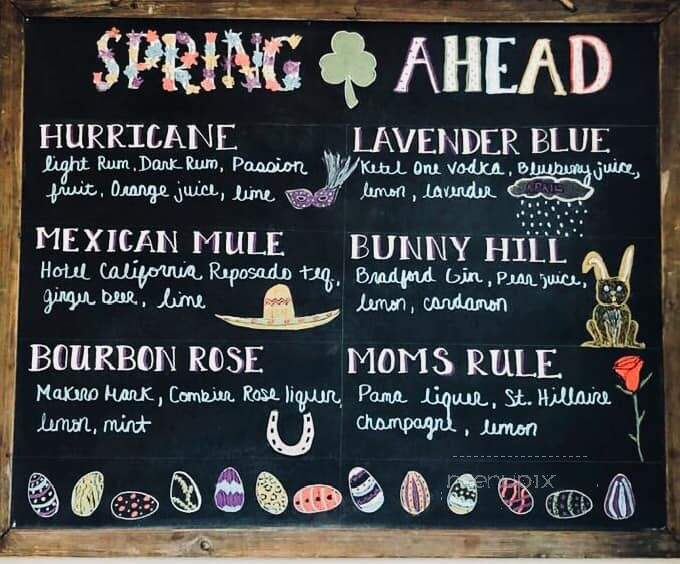 SPRING AHEAD
HURRICANE
light Rum, Dark Rum, Passion
fruit, Orange juice, lime
MEXICAN MULE
Hotel California Reposado teq,
ginger beer, lime
BOURBON ROSE
Makers Mark, Combier Rose liquer,
lemon, mint
LAVENDER BLUE
Ketel One Vodka, Blueberry juice,
lemon, lavender
APRIL
BUNNY HILL
Bradford Gin, Pear juice,
lemon, cardamon
MOMS RULE
Pama liquer, St. Hillaire
Champagne, lemon
menupix